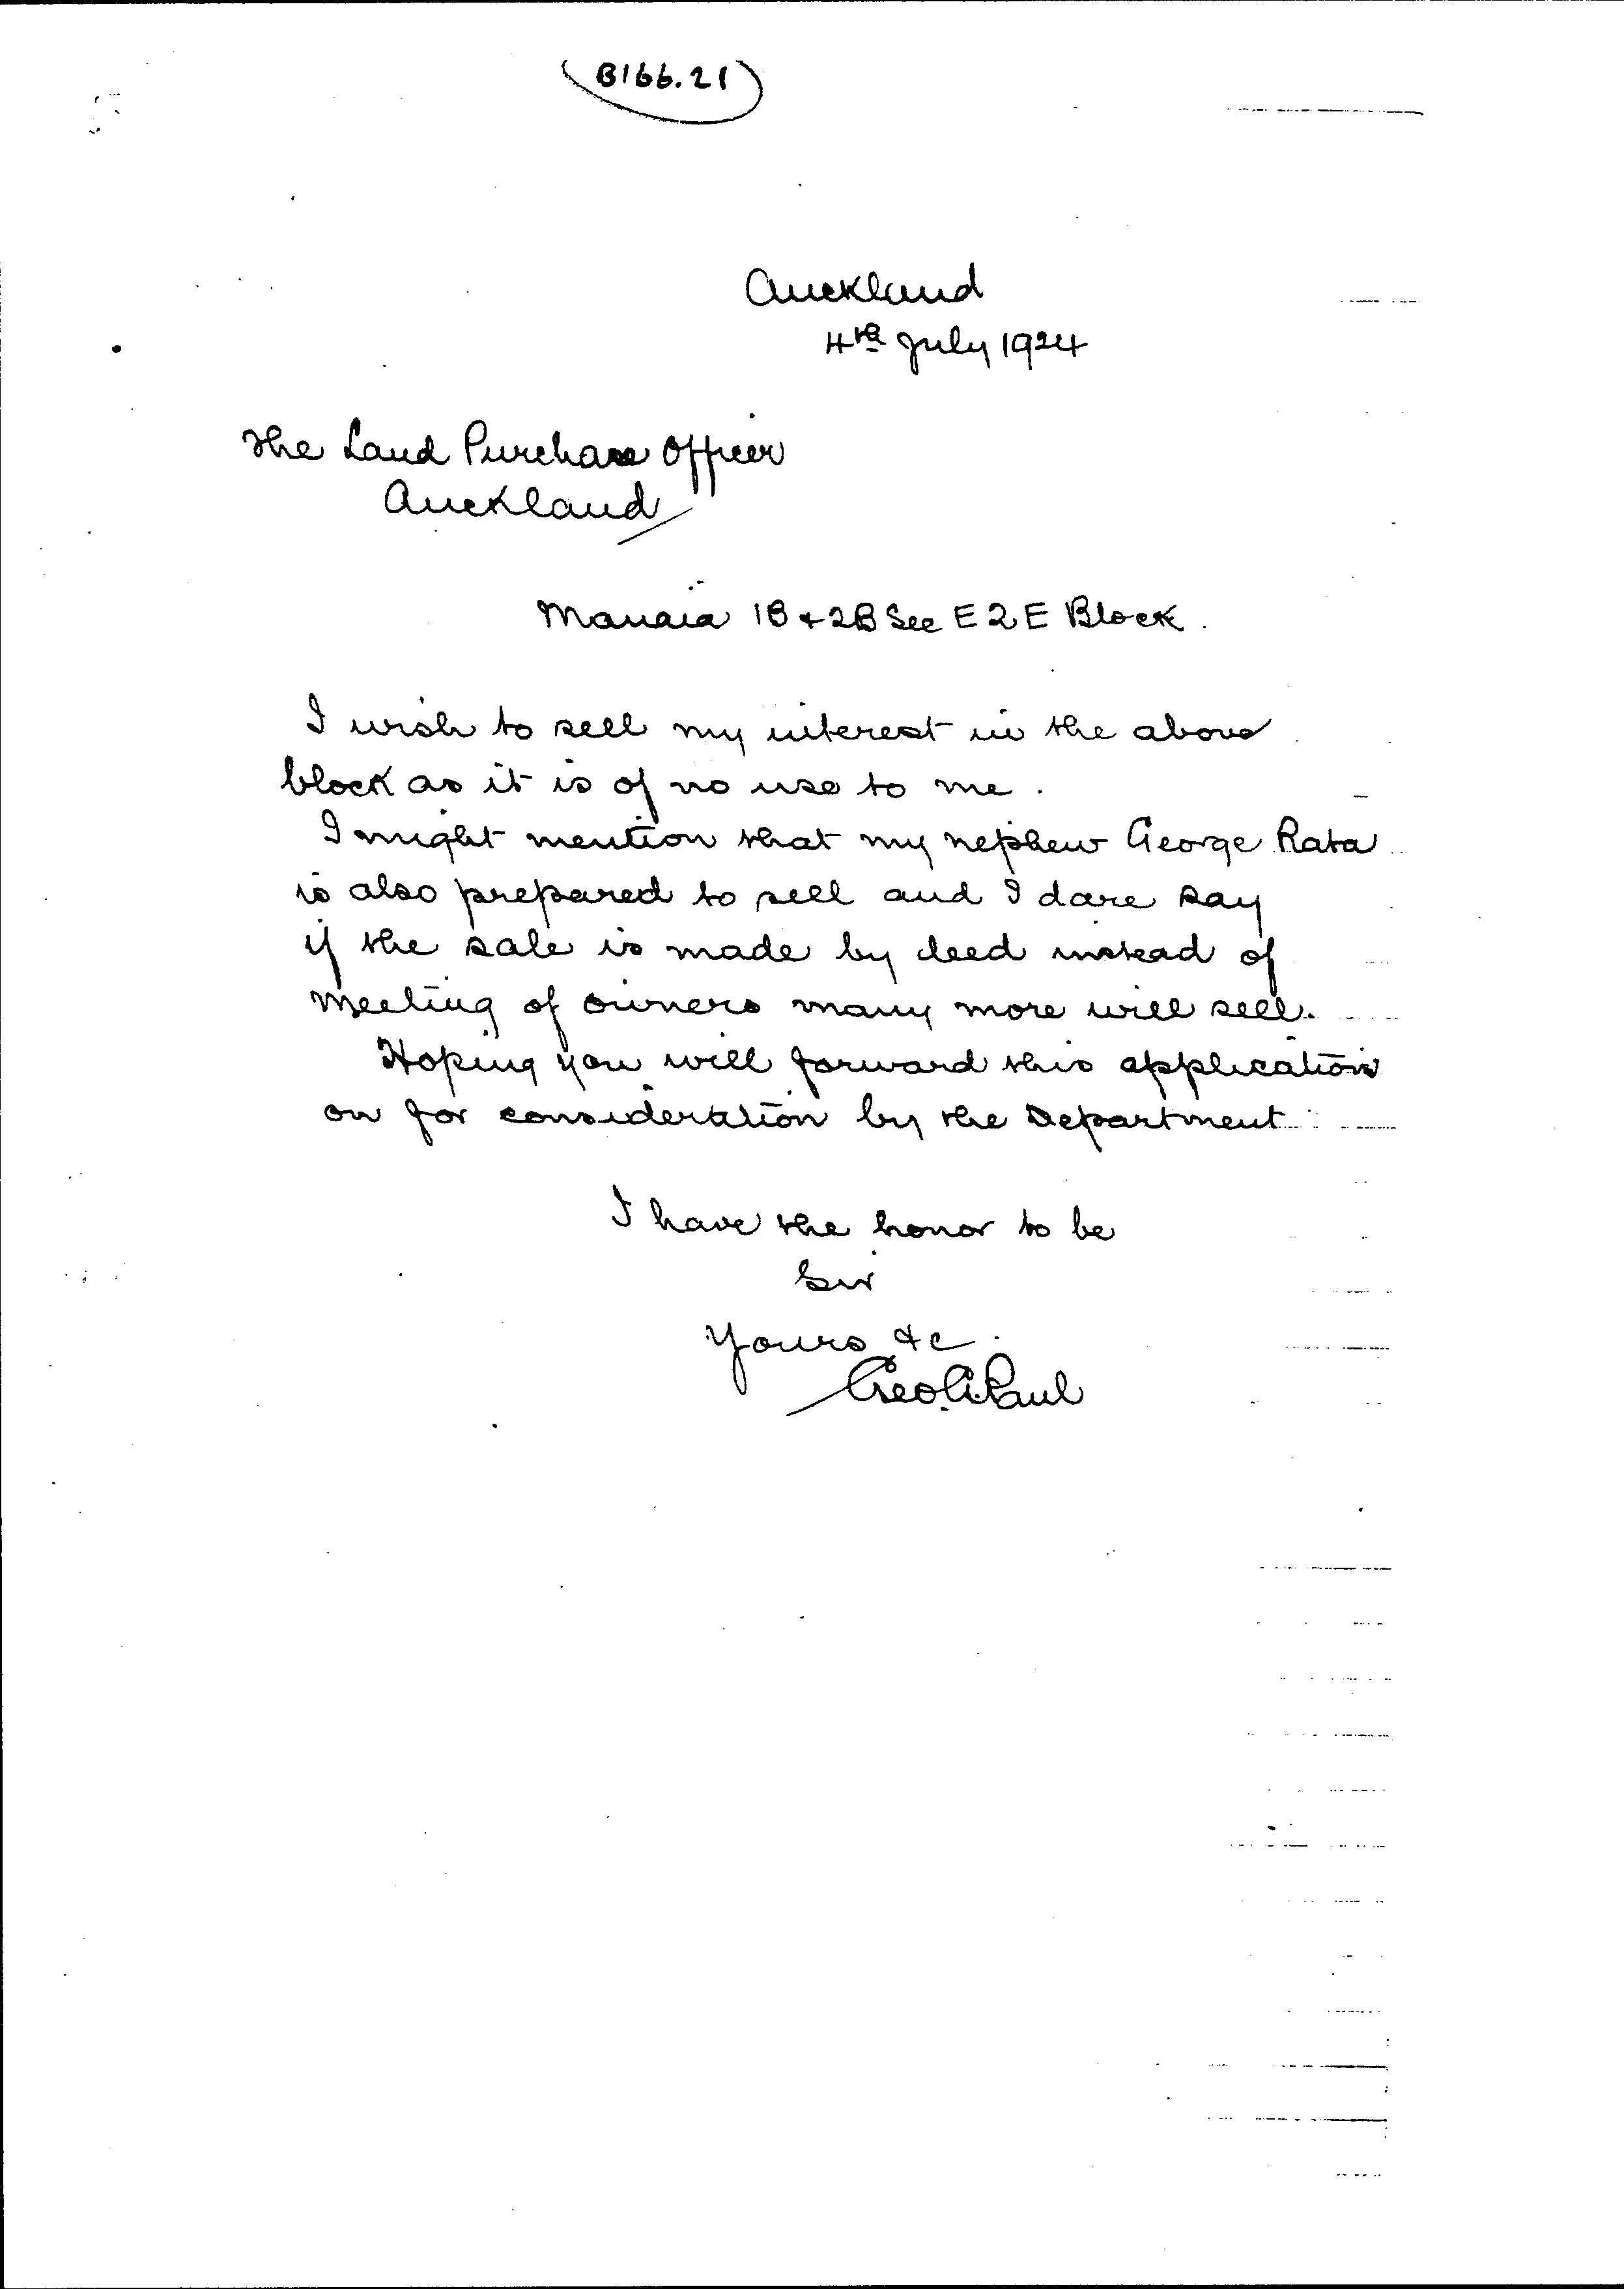 B166.21
Auckland
4th July 1924
The Land Purchase Officer
Auckland
Manaia 1B & 2B Sec E2E Block.
I wish to sell my interest in the above
block as it is of no use to me.
I might mention that my nephew George Rata
is also prepared to sell and I dare say
if the sale is made by deed instead of
meeting of owners many more will sell.
Hoping you will forward this application
on for consideration by the Department
I have the honor to be
Sir
Yours &c.
Geo. A. Paul